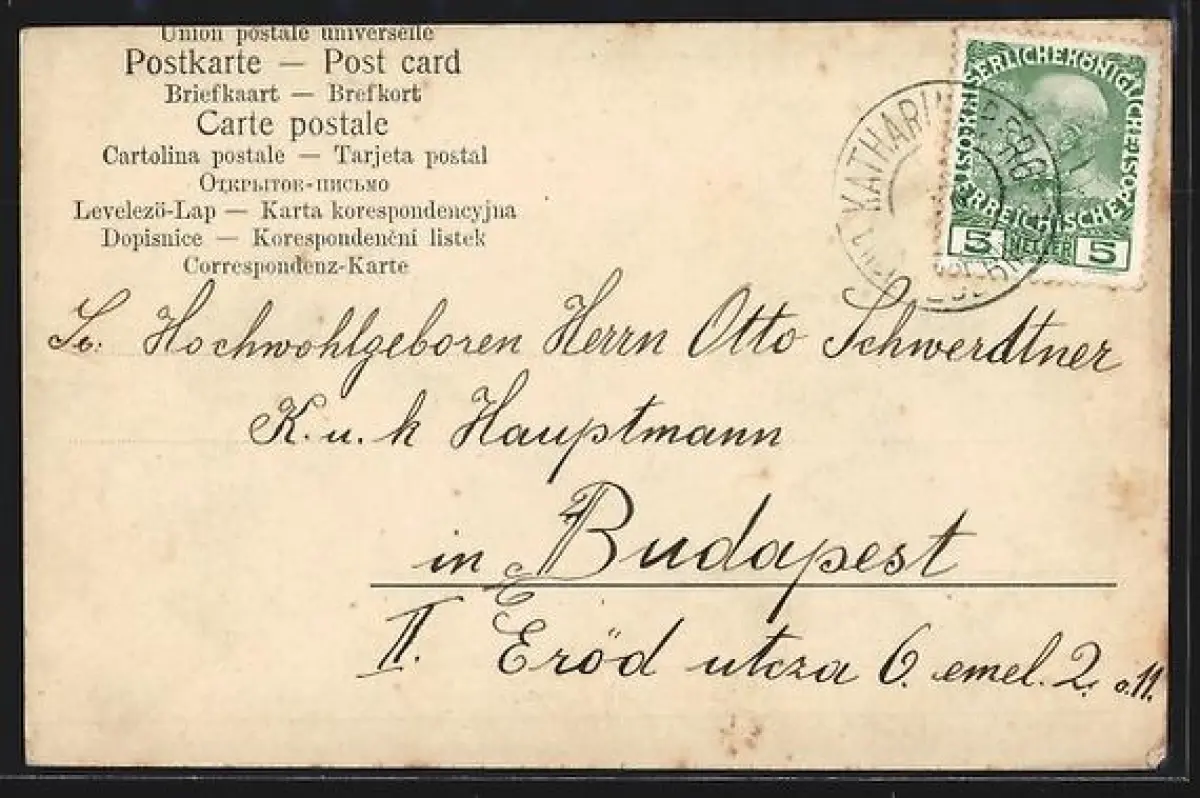 Union postale universelle
Postkarte — Post card
Briefkaart — Brefkort
Carte postale
Cartolina postale — Tarjeta postal
Открытое-письмо
Levelezö-Lap — Karta korespondencyjna
Dopisnice — Korespondenční listek
Correspondenz-Karte
KAISERLICHEKÖNIGLICHEÖSTERREICHISCHEPOST
5 HELLER 5
Sr. Hochwohlgeboren Herrn Otto Schwerdtner
K. u. k Hauptmann
in Budapest
II. Eröd utcza 6. emel. 2. a. 11.